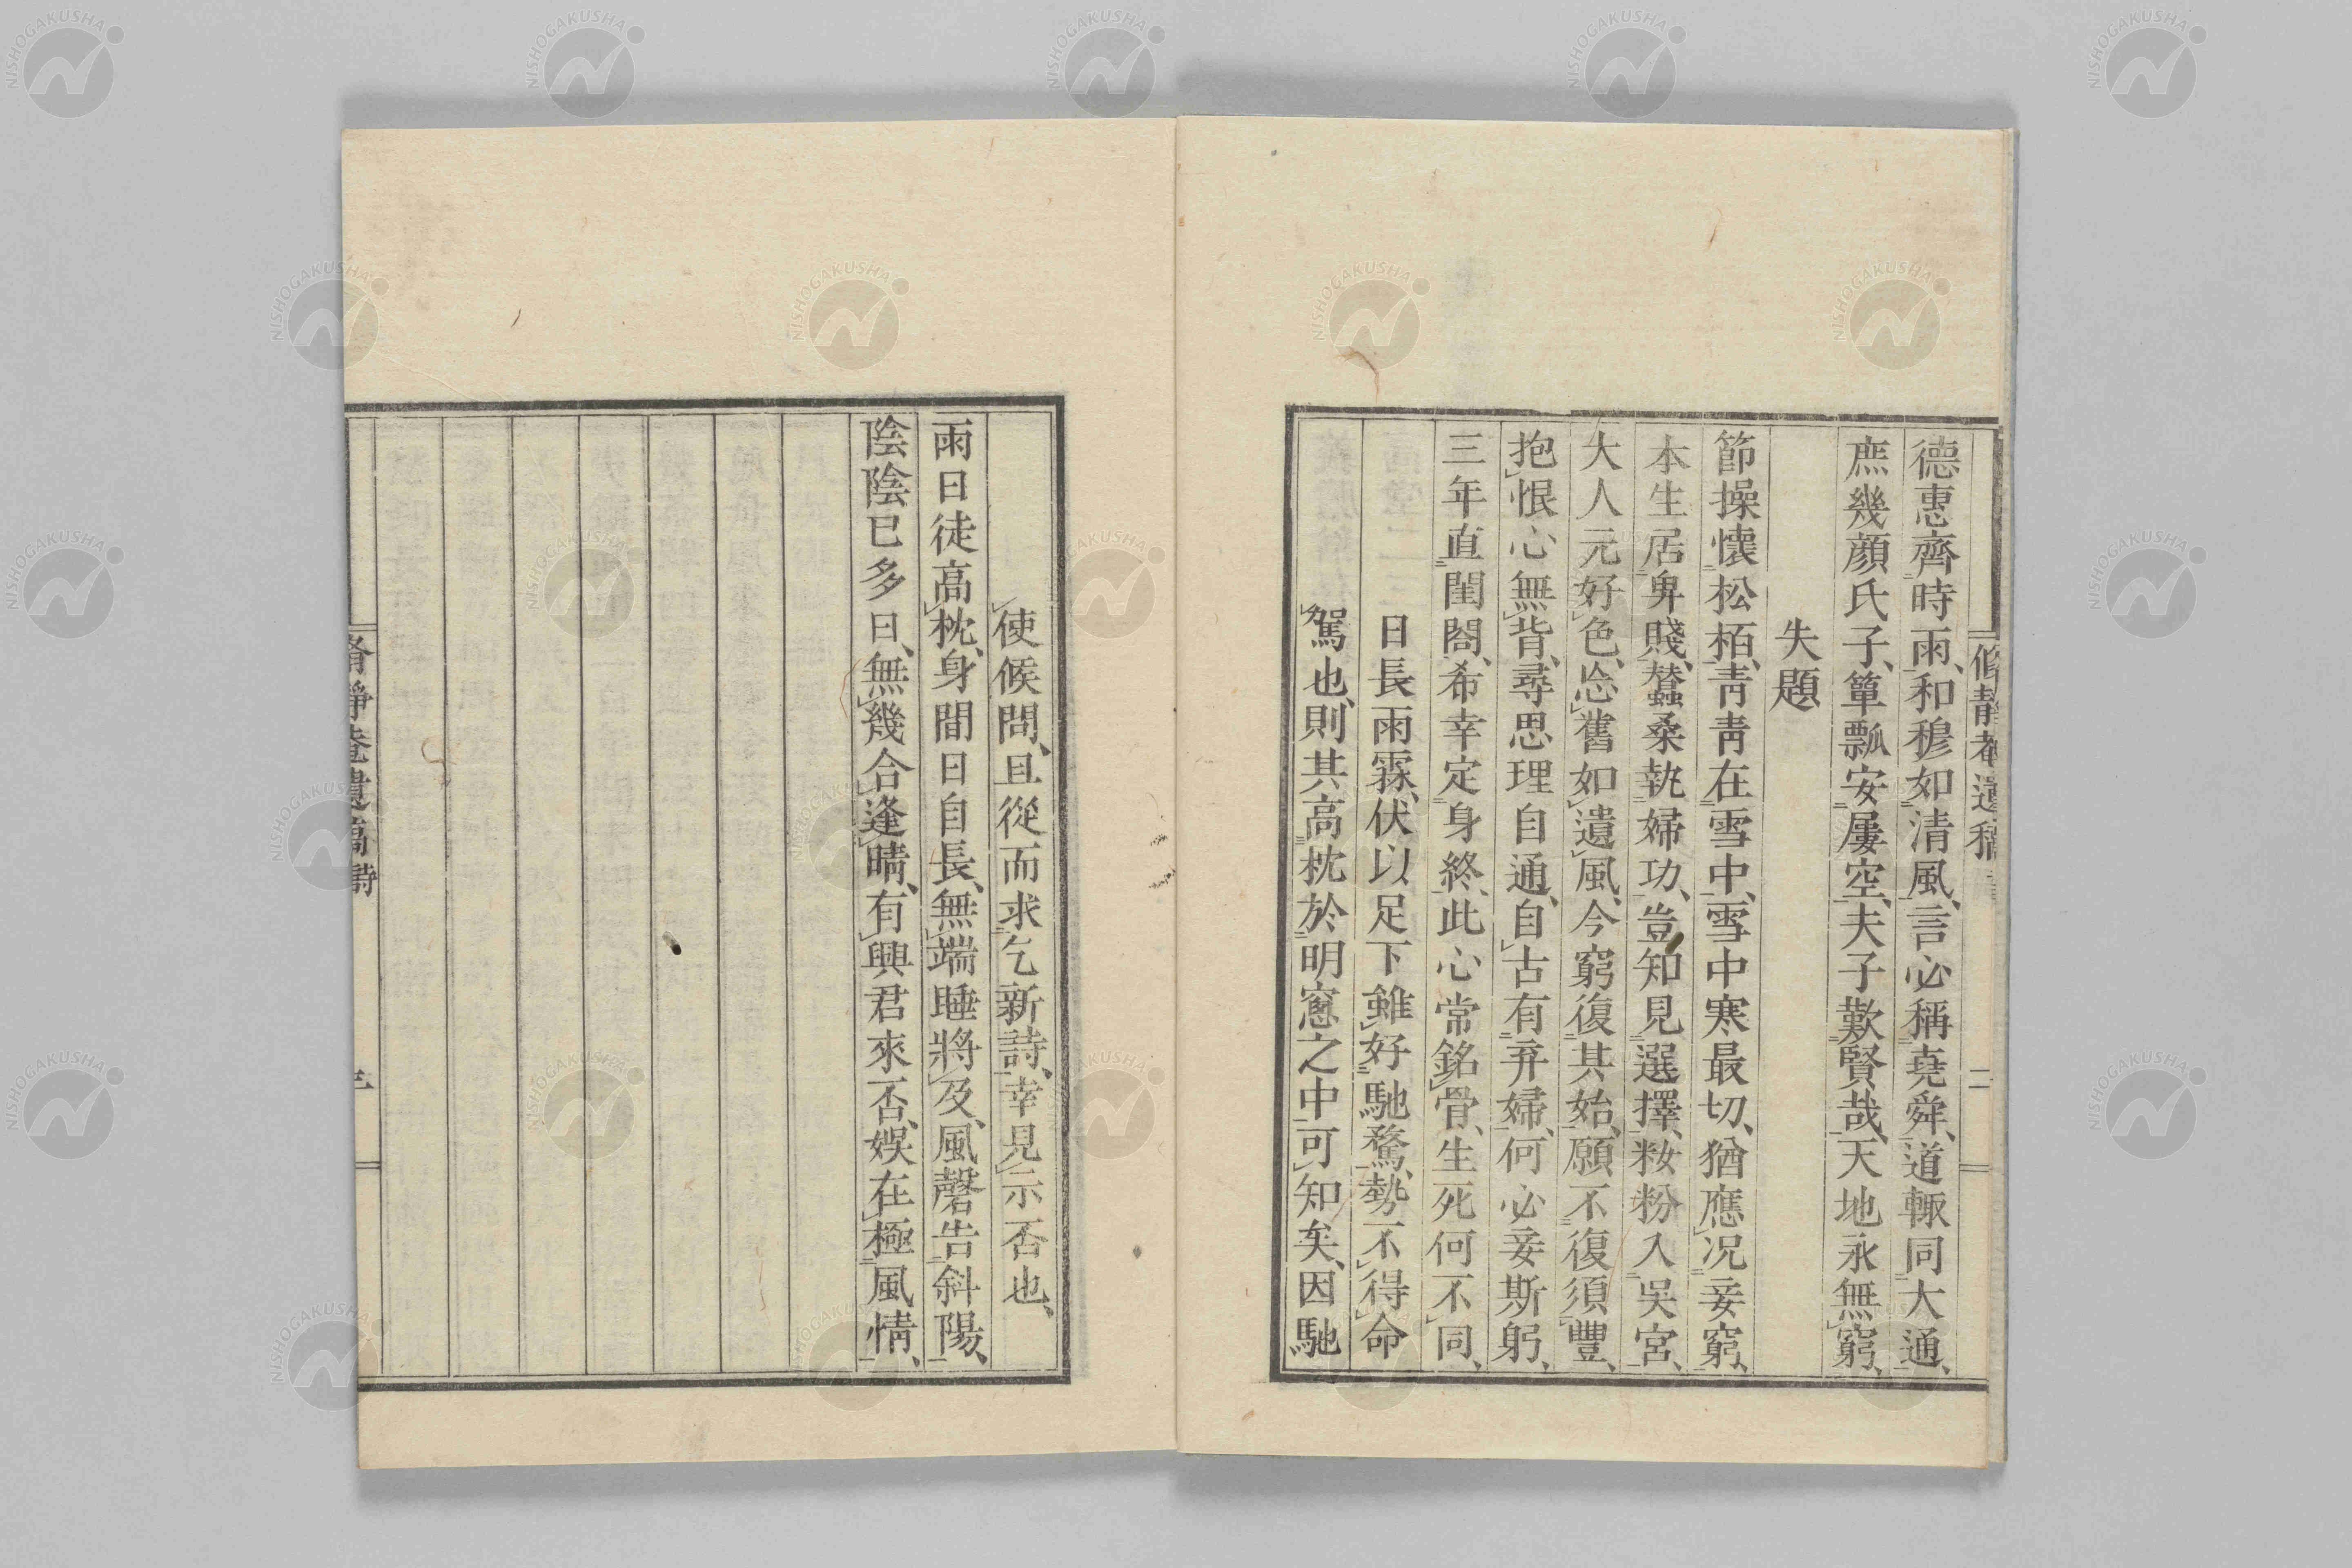 脩靜菴遺稿
二
德惠齊時雨、和穆如清風、言必稱堯舜、道輙同大通、
庶幾顔氏子、簞瓢安屢空、夫子歎賢哉、天地永無窮、
失題
節操懷松栢、靑靑在雪中、雪中寒最切、猶應况妾窮、
本生居卑賤、蠶桑執婦功、豈知見選擇、籹粉入吳宮、
大人元好色、忩舊如遺風、今窮復其始、願不復須豐、
抱恨心無背、尋思理自通、自古有弃婦、何必妾斯躬、
三年直閨閤、希幸定身終、此心常銘骨、生死何不同、
日長雨霖、伏以足下雖好馳騖、勢不得命
駕也、則其高枕於明窓之中可知矣、因馳
使候問、且從而求乞新詩、幸見示否也、
雨日徒高枕、身間日自長、無端睡將及、風磬告斜陽、
陰陰已多日、無幾合逢晴、有興君來否、娛在極風情、
脩靜菴遺稿 詩
三
NISHOGAKUSHA